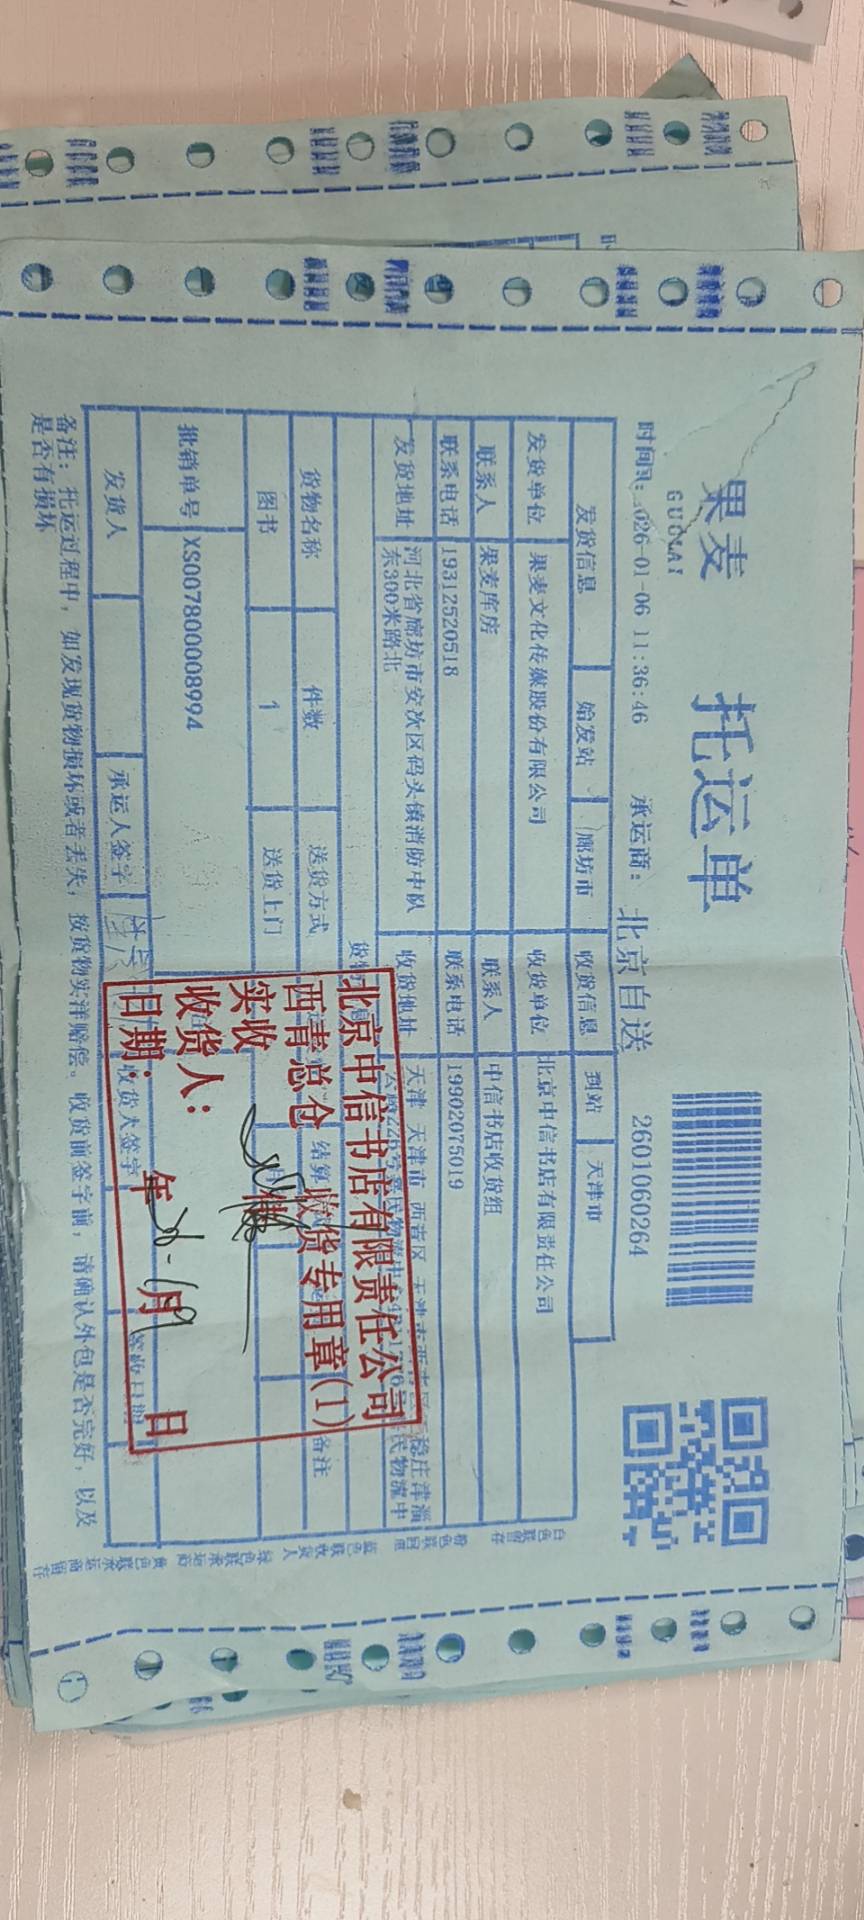 果麦 托运单
GUOMAI
时间:2026-01-06 11:36:46 承运商: 北京自送 2601060264
发货信息 始发站 廊坊市 收货信息 到站 天津市
发货单位 果麦文化传媒股份有限公司 收货单位 北京中信书店有限责任公司
联系人 果麦库房 联系人 中信书店收货组
联系电话 19312520518 联系电话 19902075019
发货地址 河北省廊坊市安次区码头镇消防中队 收货地址 天津 天津市 西青区
东300米路北
货物名称 件数 送货方式 结算 备注
图书 1 送货上门
批销单号 XS007800008994
发货人 承运人签字 收货人签字 签收日期
备注: 托运过程中, 如发现货物损坏或者丢失, 按货物实洋赔偿。收货前签字前, 请确认外包是否完好, 以及
是否有损坏
北京中信书店有限责任公司
西青总仓 收货专用章(1)
实收
收货人:
日期: 年 月 日
白色联留存
粉色联回单
蓝色联收货人
绿色联承运商
黄色联承运商留存